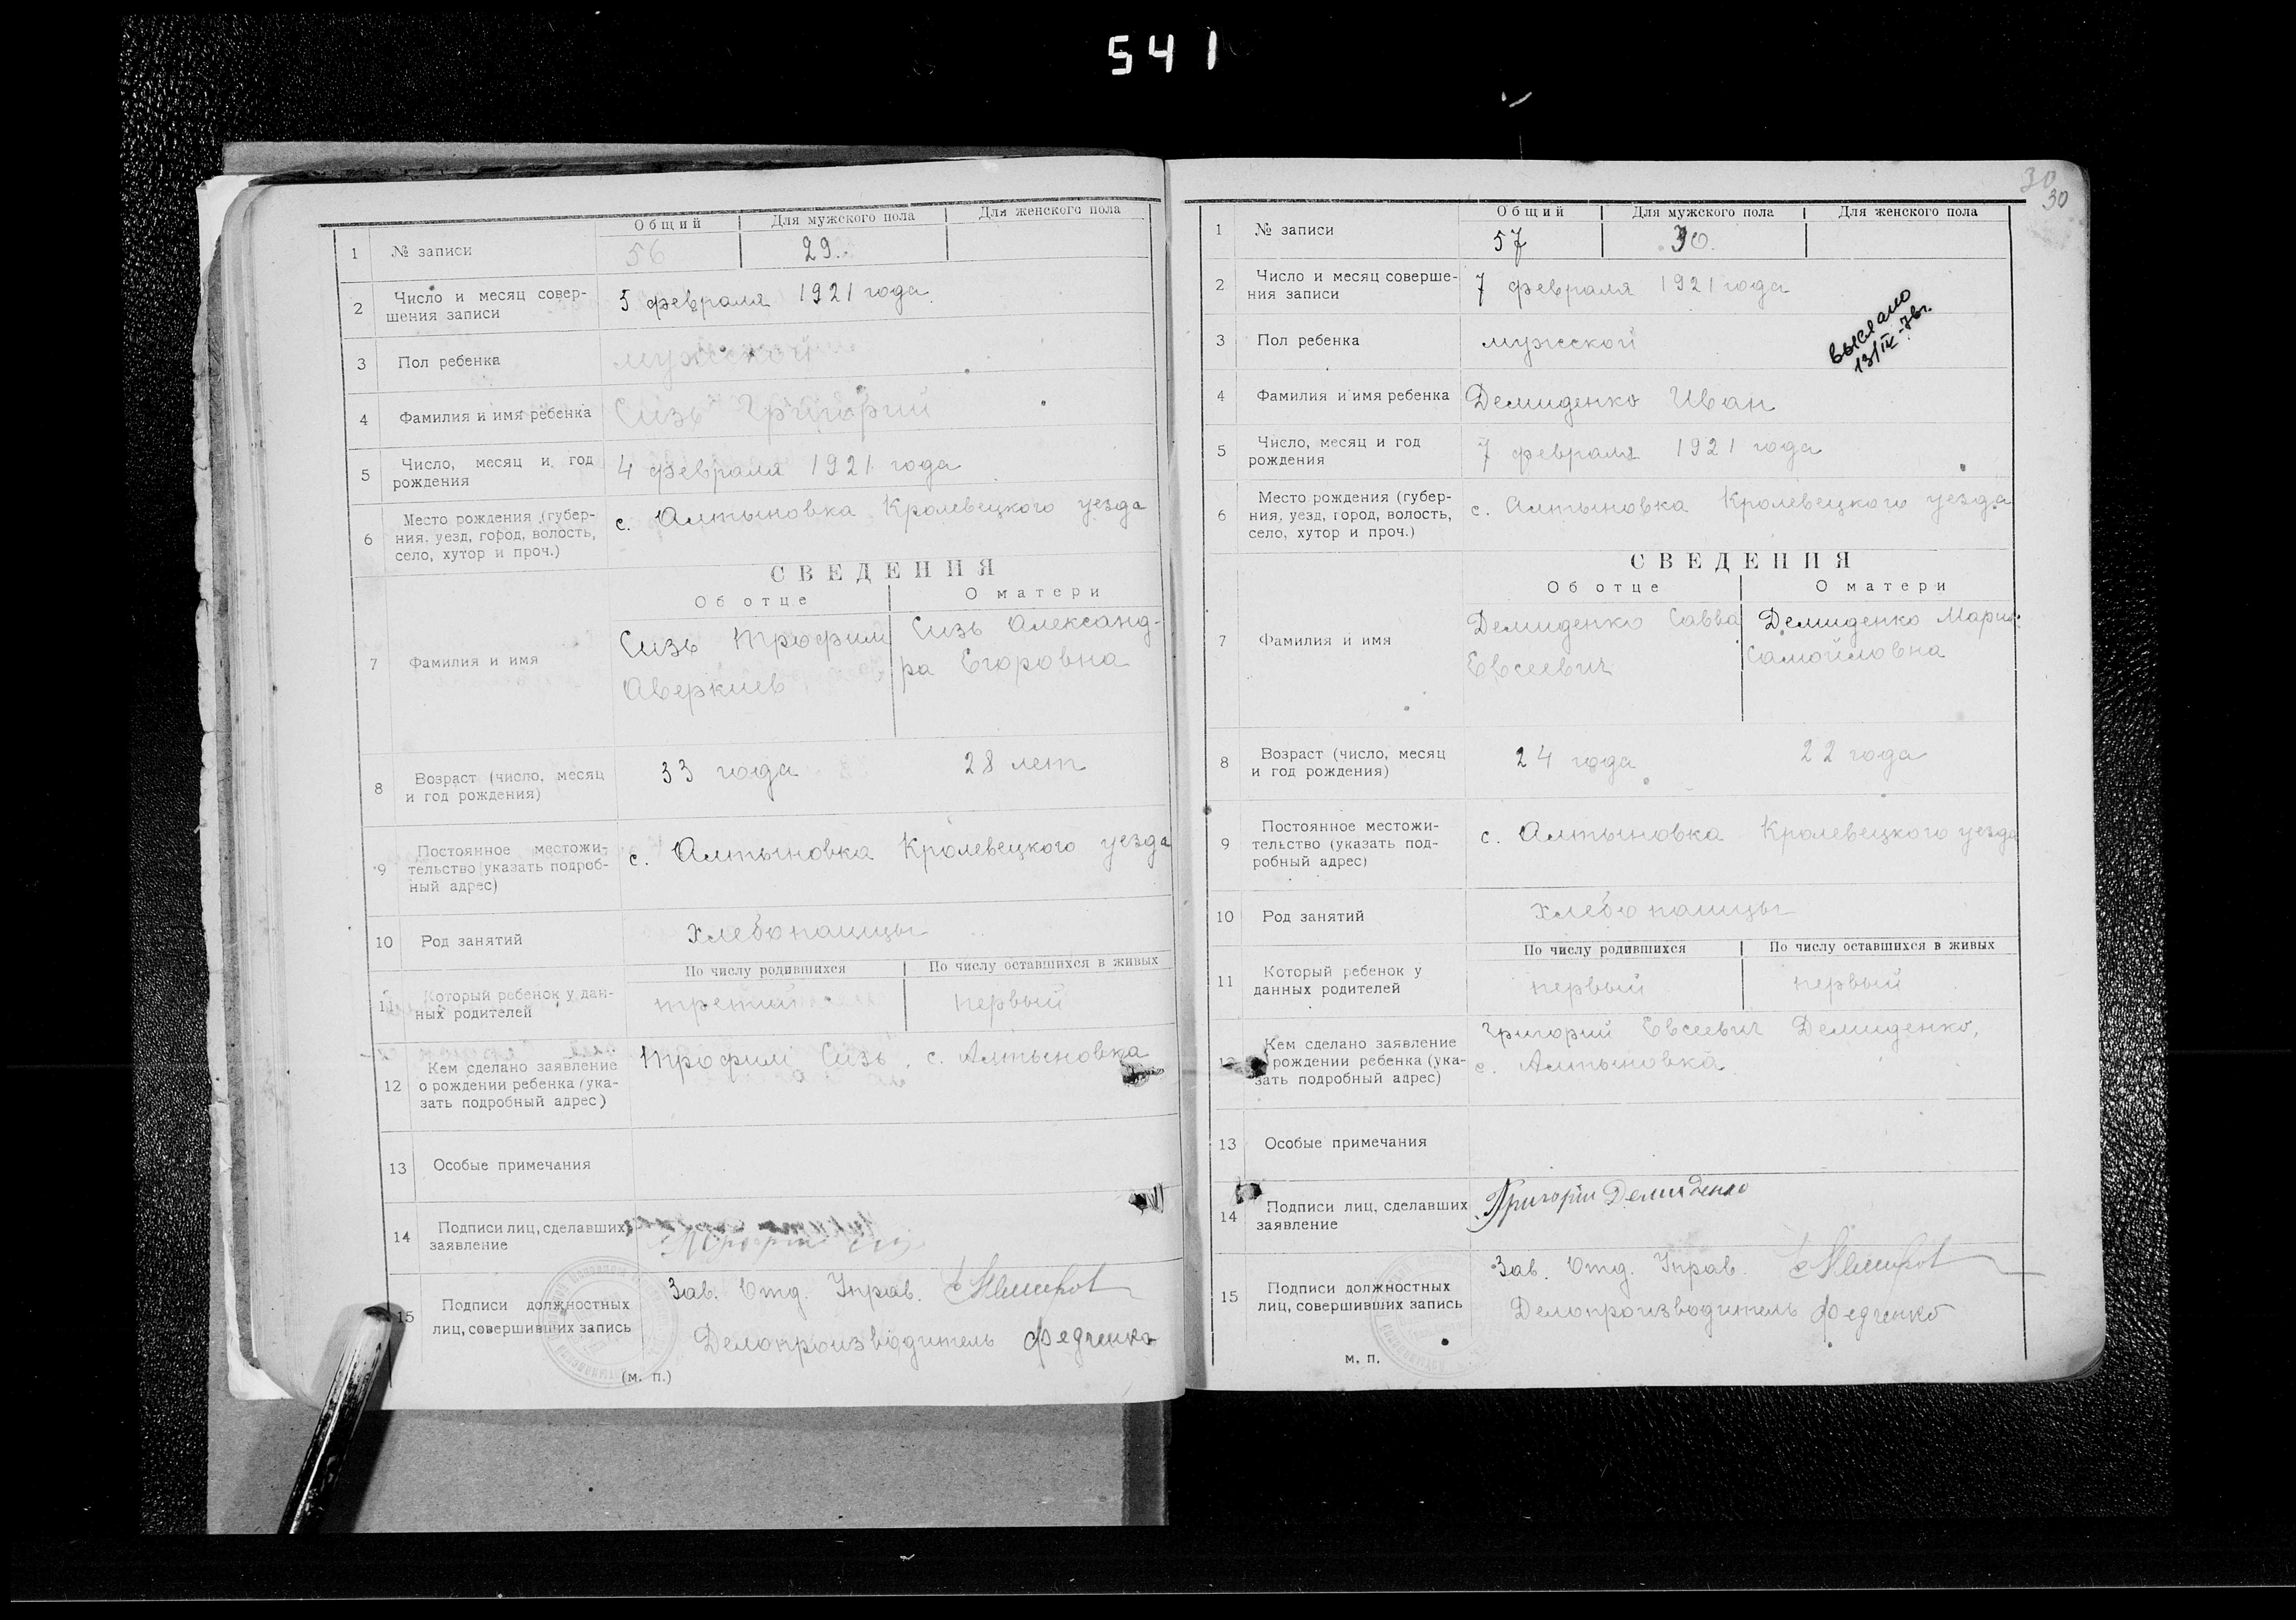 541
Общий Для мужского пола Для женского пола
1 № записи 56 29.
2 Число и месяц совер-
шения записи 5 февраля 1921 года
3 Пол ребенка мужской
4 Фамилия и имя ребенка Сизь Григорий
5 Число, месяц и год
рождения 4 февраля 1921 года
6 Место рождения (губер-
ния, уезд, город, волость,
село, хутор и проч.) с. Алтыновка Кролевецкого уезда
СВЕДЕНИЯ
Об отце О матери
7 Фамилия и имя
Сизь Трофим Сизь Александ-
Аверкиев ра Егоровна
8 Возраст (число, месяц
и год рождения) 33 года 28 лет
9 Постоянное местожи-
тельство (указать подроб-
ный адрес) с. Алтыновка Кролевецкого уезда
10 Род занятий хлебопашцы
По числу родившихся По числу оставшихся в живых
11 Который ребенок у дан-
ных родителей третий первый
12 Кем сделано заявление
о рождении ребенка (ука-
зать подробный адрес) Трофим Сизь, с. Алтыновка
13 Особые примечания
14 Подписи лиц, сделавших
заявление
15 Подписи должностных
лиц, совершивших запись
Зав. Отд. Управ.
Делопроизводитель Федченко
(м. п.)
30
30
Общий Для мужского пола Для женского пола
1 № записи 57 30.
2 Число и месяц соверше-
ния записи 7 февраля 1921 года
выслано
13/IV-76г.
3 Пол ребенка мужской
4 Фамилия и имя ребенка Демиденко Иван
5 Число, месяц и год
рождения 7 февраля 1921 года
6 Место рождения (губер-
ния, уезд, город, волость,
село, хутор и проч.) с. Алтыновка Кролевецкого уезда
СВЕДЕНИЯ
Об отце О матери
7 Фамилия и имя
Демиденко Савва Демиденко Мария
Евсеевич Самойловна
8 Возраст (число, месяц
и год рождения) 24 года 22 года
9 Постоянное местожи-
тельство (указать под-
робный адрес) с. Алтыновка Кролевецкого уезда
10 Род занятий хлебопашцы
По числу родившихся По числу оставшихся в живых
11 Который ребенок у
данных родителей первый первый
12 Кем сделано заявление
о рождении ребенка (ука-
зать подробный адрес)
Григорий Евсеевич Демиденко,
с. Алтыновка
13 Особые примечания
14 Подписи лиц, сделавших
заявление Григорий Демиденко
15 Подписи должностных
лиц, совершивших запись
Зав. Отд. Управ.
Делопроизводитель Федченко
м. п.